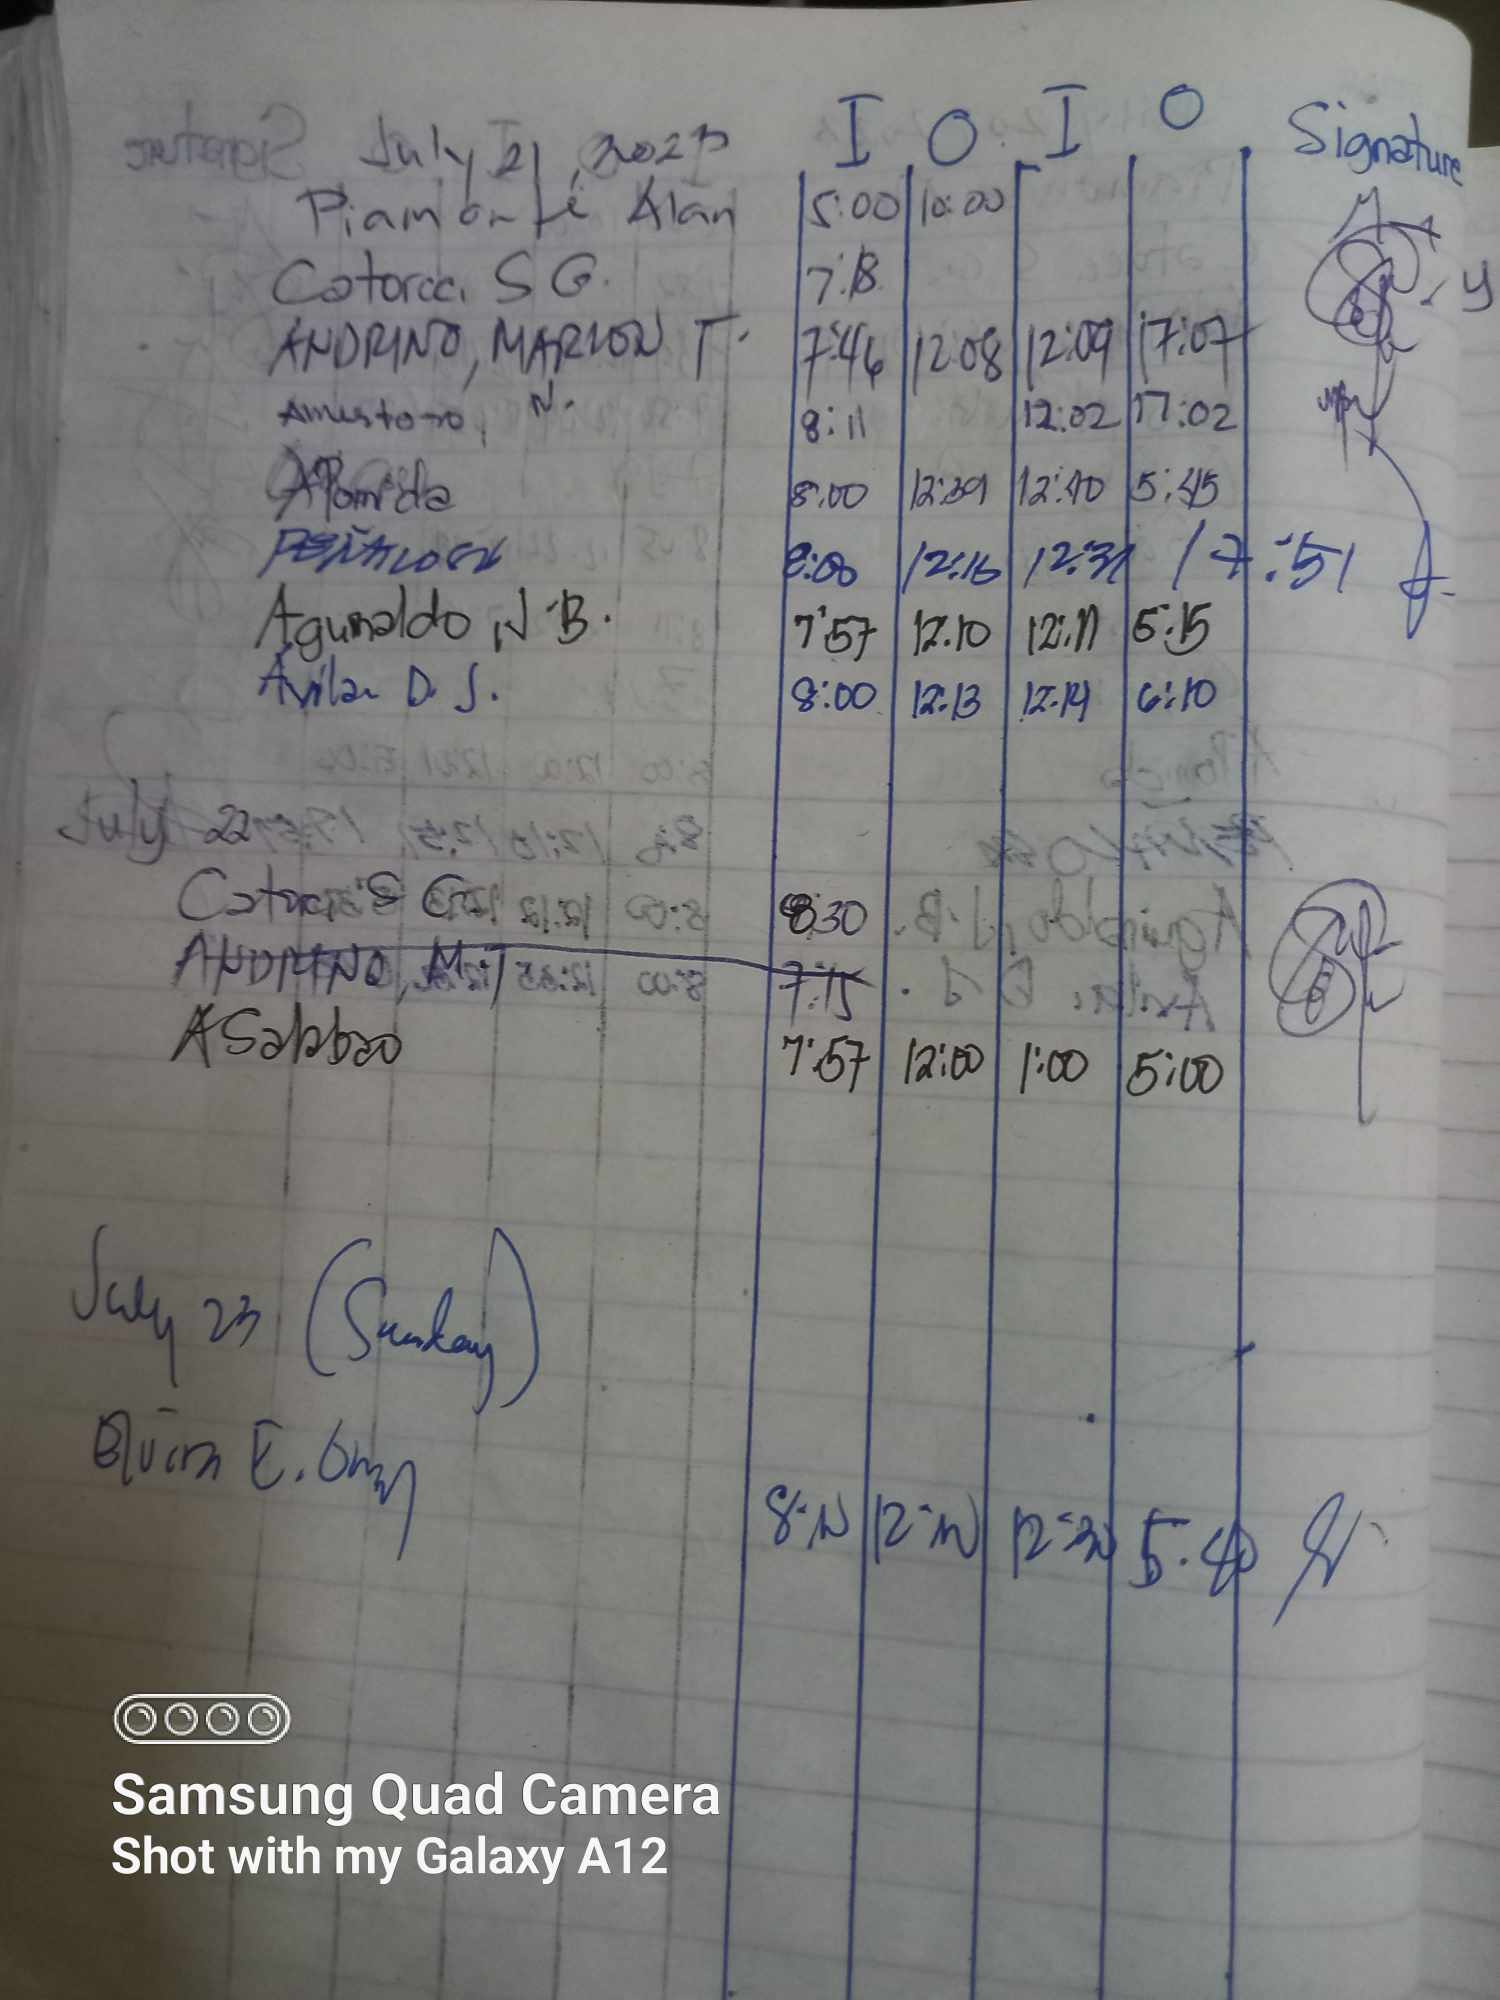 July 21, 2023 I O I O Signature
Piamonte Alan 5:00 10:00
Catorce, S G. 7:13
ANDRINO, MARLON T. 7:46 12:08 12:09 17:07
N. 8:11 12:02 17:02
APomida 8:00 12:39 12:40 5:45
PEÑALOSA 8:00 12:16 12:31 17:51
Aguinaldo, J.B. 7:57 12:10 12:11 5:15
Avila D. S. 8:00 12:13 12:14 6:10
July 22
Catorce S G. 8:30
ANDRINO, M.T 7:15
ASabbao 7:57 12:00 1:00 5:00
July 23 (Sunday)
E. 5.40
Samsung Quad Camera
Shot with my Galaxy A12